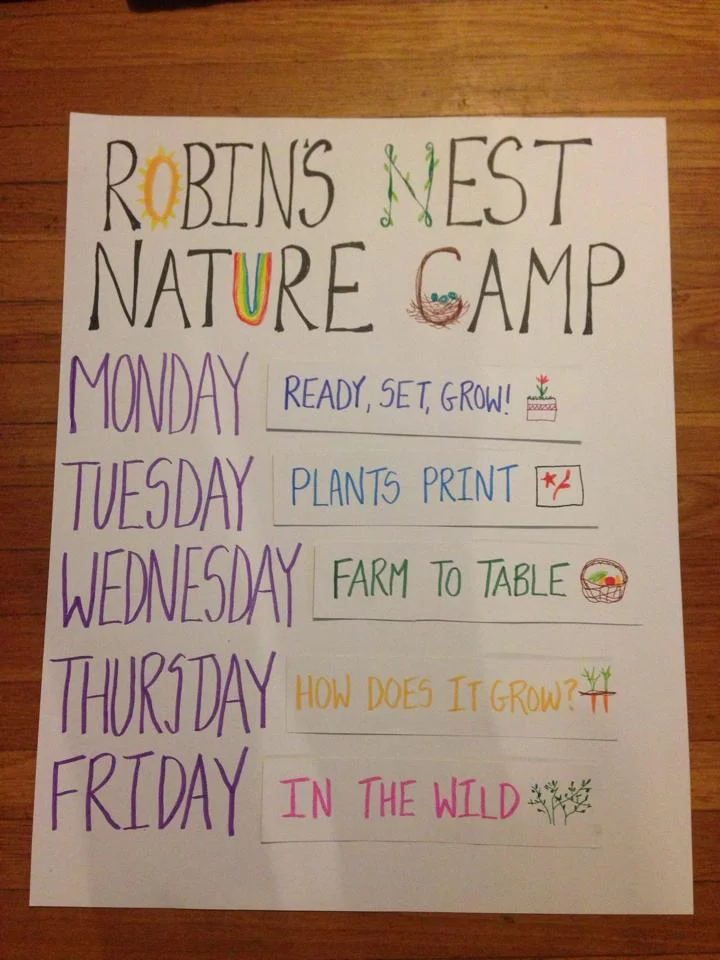 ROBIN'S NEST
NATURE CAMP
MONDAY READY, SET, GROW!
TUESDAY PLANTS PRINT
WEDNESDAY FARM TO TABLE
THURSDAY HOW DOES IT GROW?
FRIDAY IN THE WILD